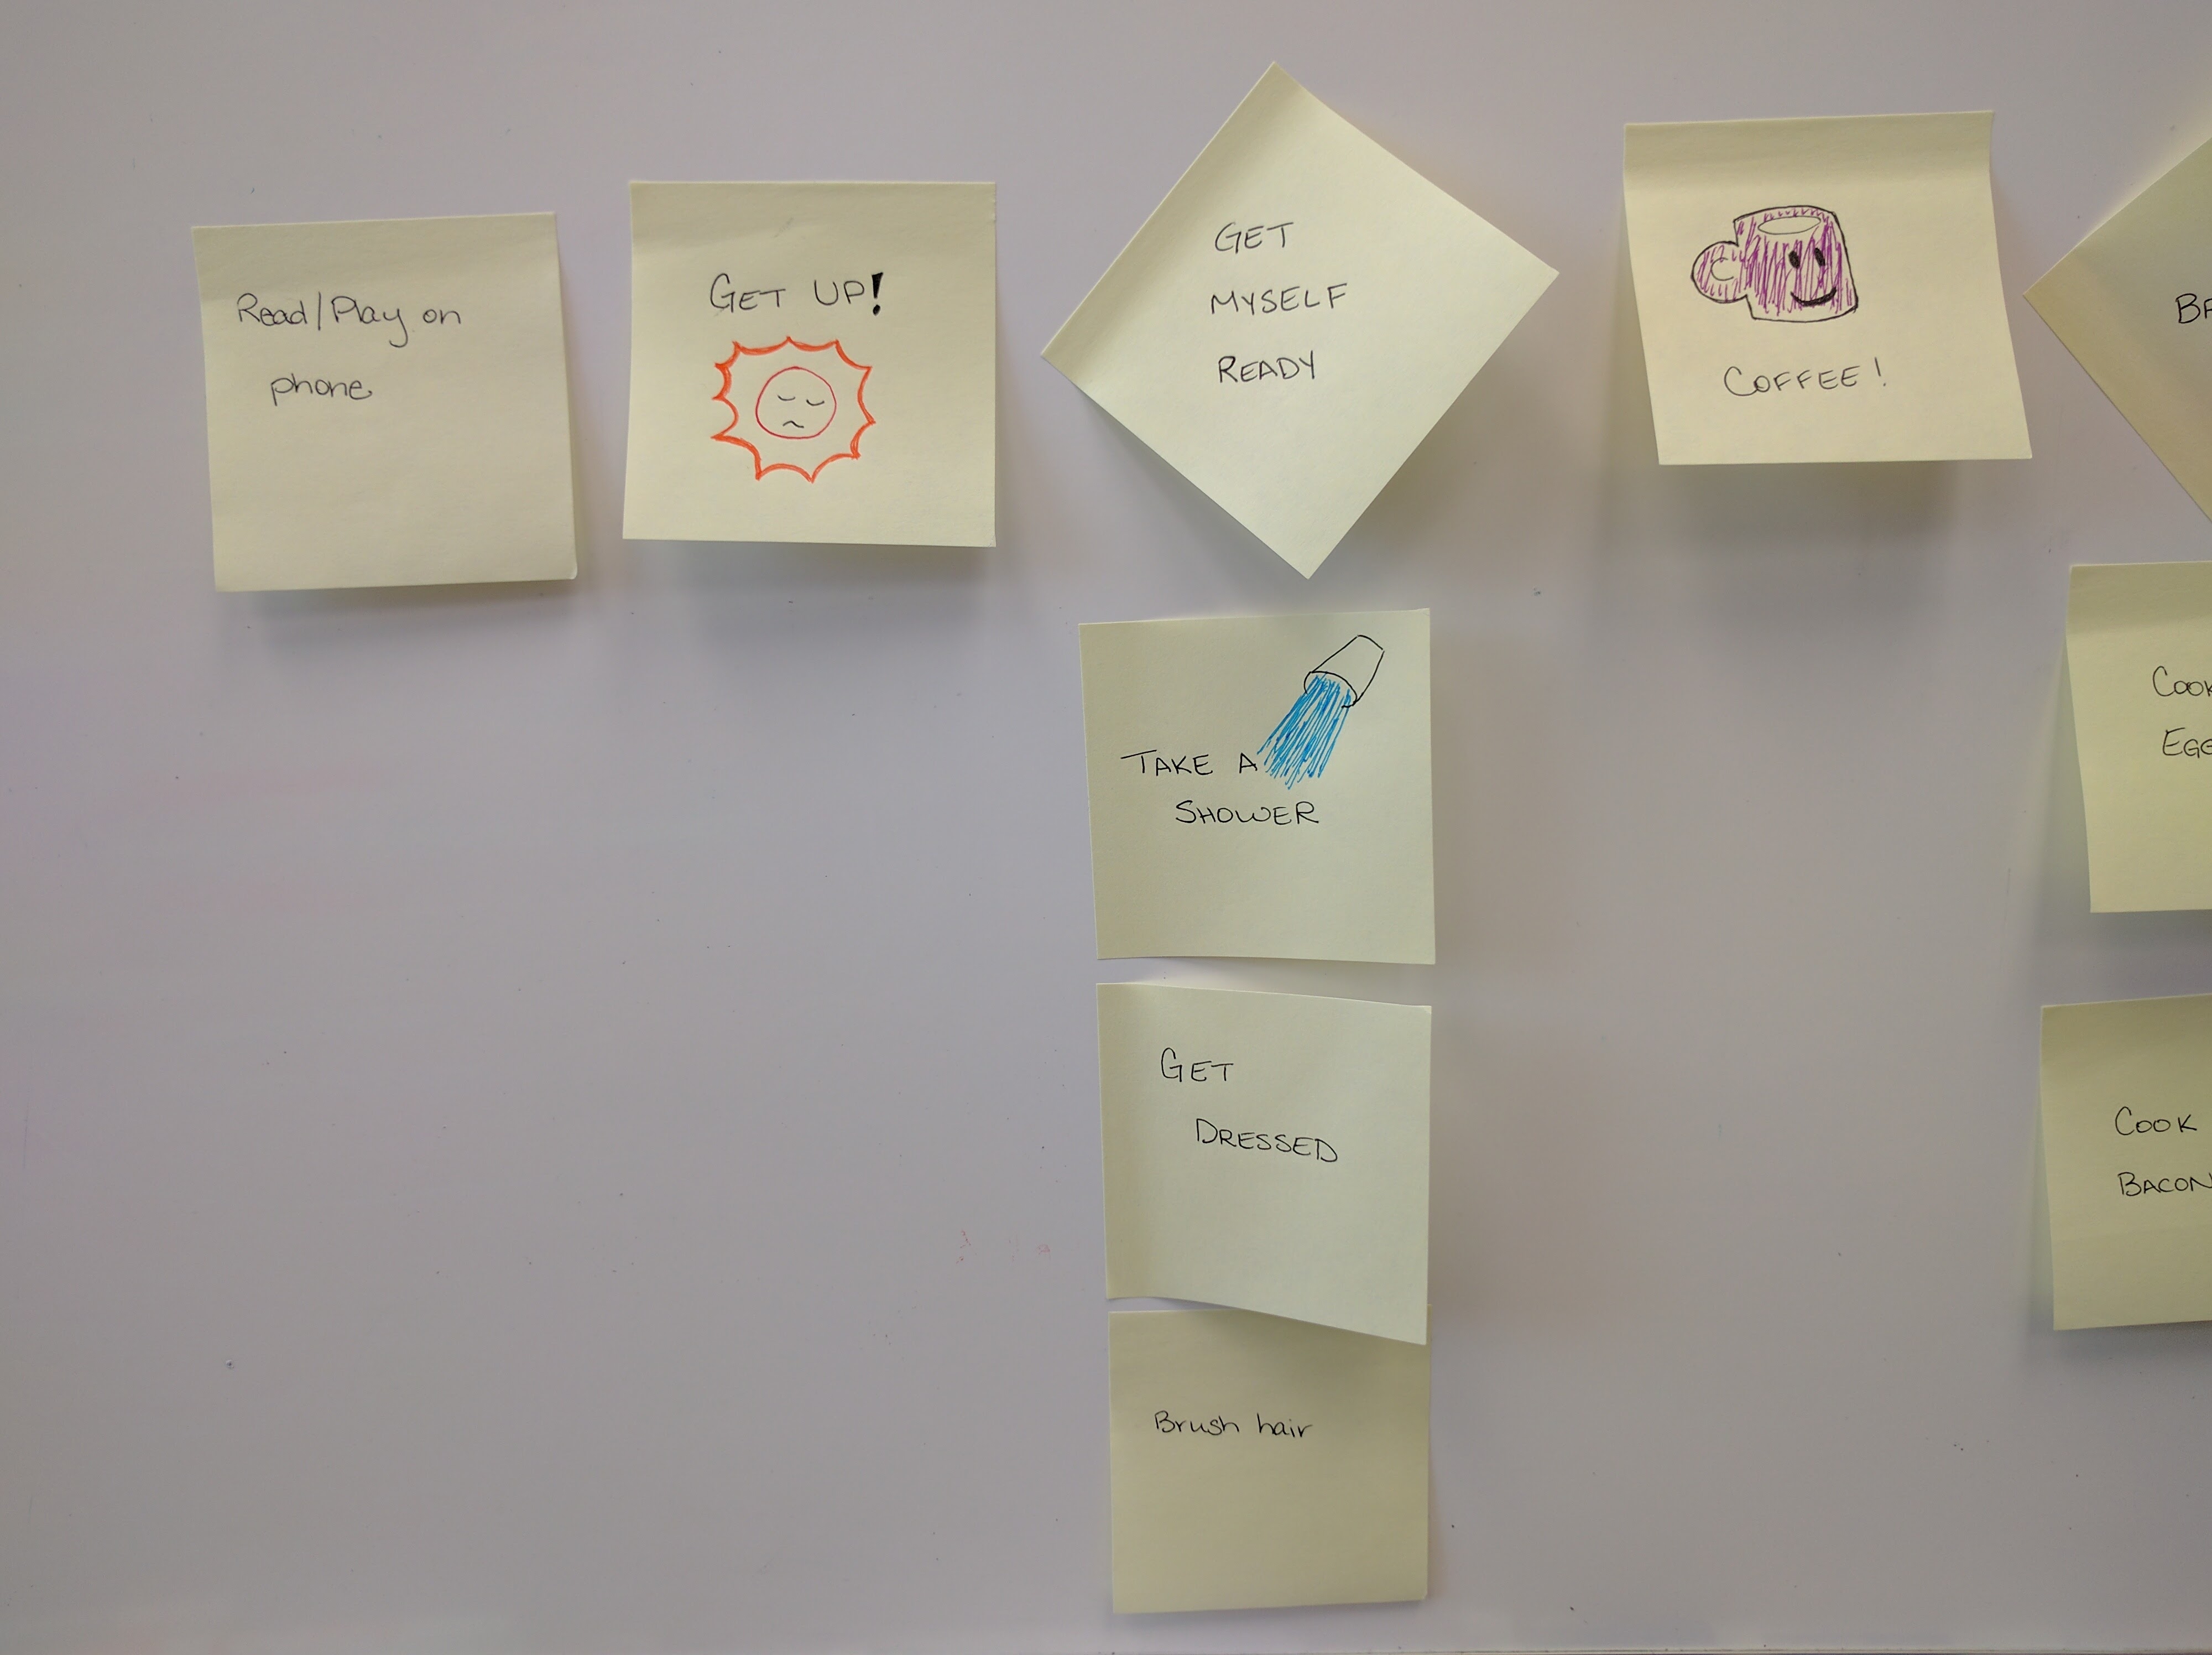 Read/Play on
phone
GET UP!
GET
MYSELF
READY
COFFEE!
TAKE A
SHOWER
GET
DRESSED
Brush hair
COOK
COOK
BACON